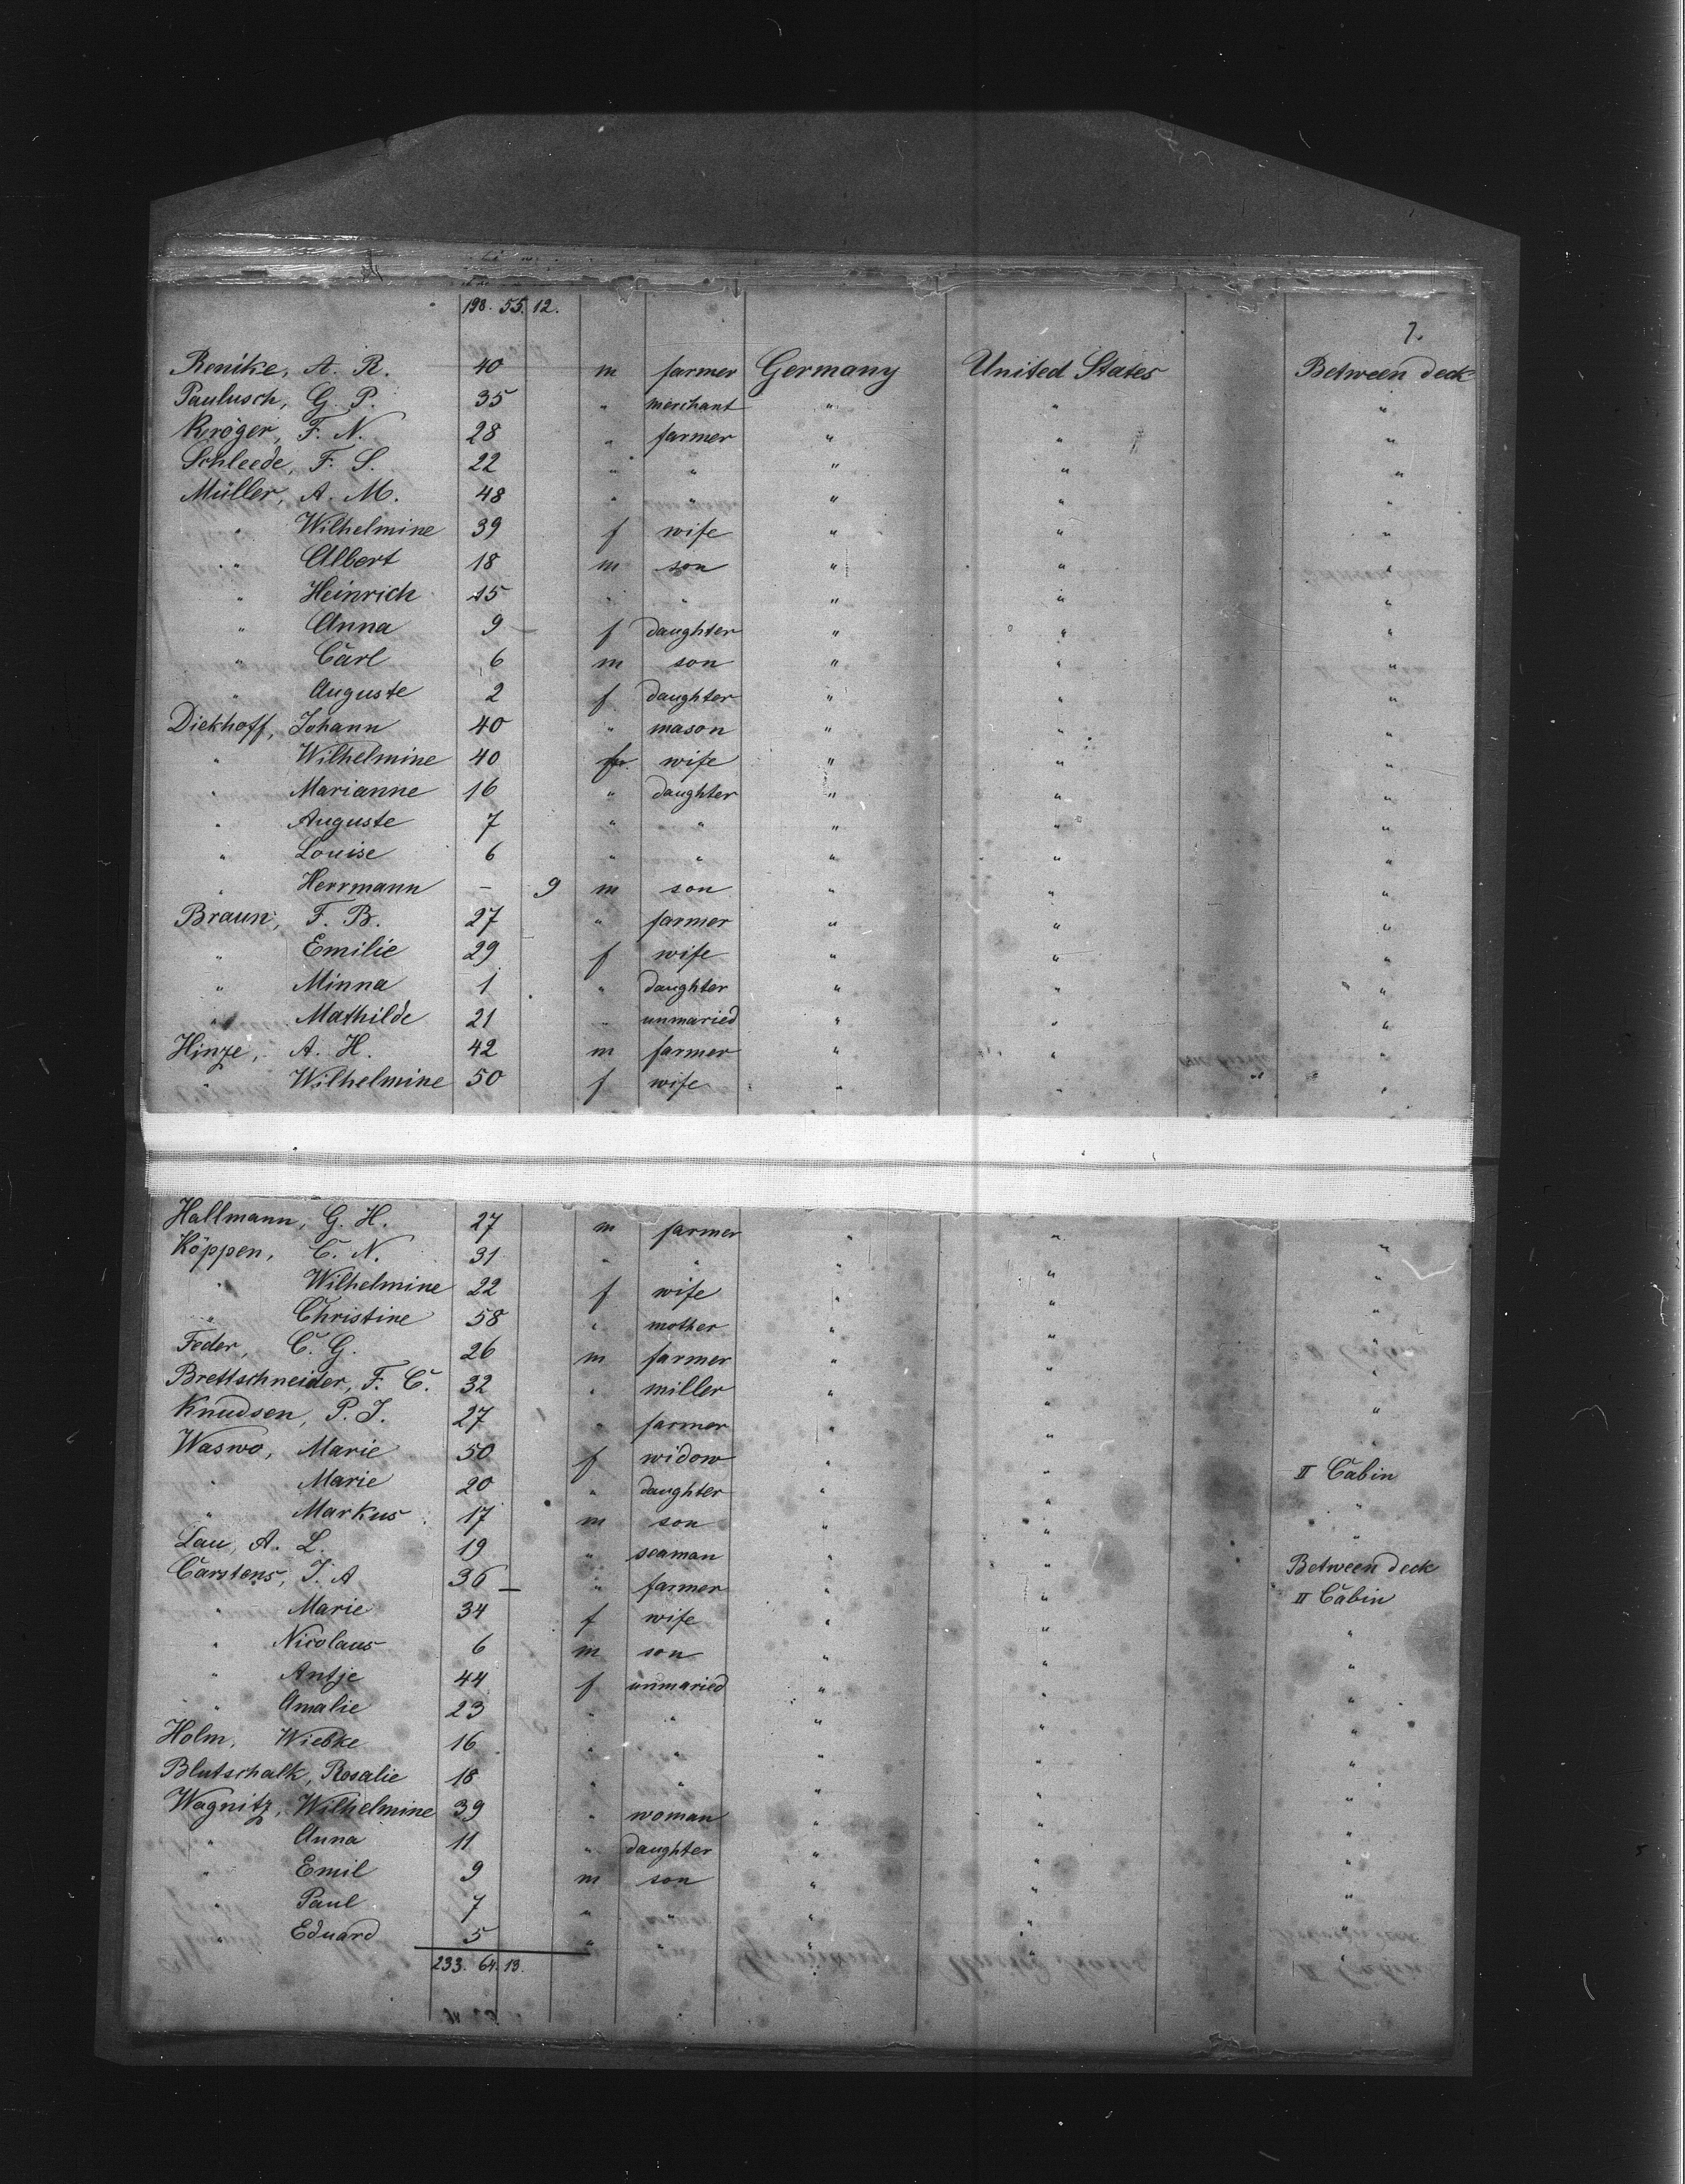 198. 55. 12.
7.
Renike, A. R. 40 m farmer Germany United States Between deck
Paulusch, G. P. 35 " merchant " " "
Kröger, F. N. 28 " farmer " " "
Schleede, F. S. 22 " " " " "
Müller, A. M. 48 " " " " "
" Wilhelmine 39 f wife " " "
" Albert 18 m son " " "
" Heinrich 15 " " " " "
" Anna 9 — f daughter " " "
" Carl 6 m son " " "
" Auguste 2 f daughter " " "
Diekhoff, Johann 40 " mason " " "
" Wilhelmine 40 f wife " " "
" Marianne 16 " daughter " " "
" Auguste 7 " " " " "
" Louise 6 " " " " "
" Herrmann – 9 m son " " "
Braun, F. B. 27 " farmer " " "
" Emilie 29 f wife " " "
" Minna 1 " daughter " " "
" Mathilde 21 " unmaried " " "
Hinze, A. H. 42 m farmer " " "
" Wilhelmine 50 f wife " " "
Hallmann, G. H. 27 m farmer " " "
Köppen, C. N. 31 " " " " "
" Wilhelmine 22 f wife " " "
" Christine 58 " mother " " "
Feder, C. G. 26 m farmer " " "
Brettschneider, F. C. 32 " miller " " "
Knudsen, P. J. 27 " farmer " " "
Waswo, Marie 50 f widow " " II Cabin
" Marie 20 " daughter " " "
" Markus 17 m son " " "
Lau, A. L. 19 " seaman " " Between deck
Carstens, J. A 36 — " farmer " " II Cabin
" Marie 34 f wife " " "
" Nicolaus 6 m son " " "
" Antje 44 f unmaried " " "
" Amalie 23 " " " " "
Holm, Wiebke 16 " " " " "
Blutschalk, Rosalie 18 " " " " "
Wagnitz, Wilhelmine 39 " woman " " "
" Anna 11 " daughter " " "
" Emil 9 m son " " "
" Paul 7 " " " " "
" Eduard 5 " " " " "
233. 64. 13.